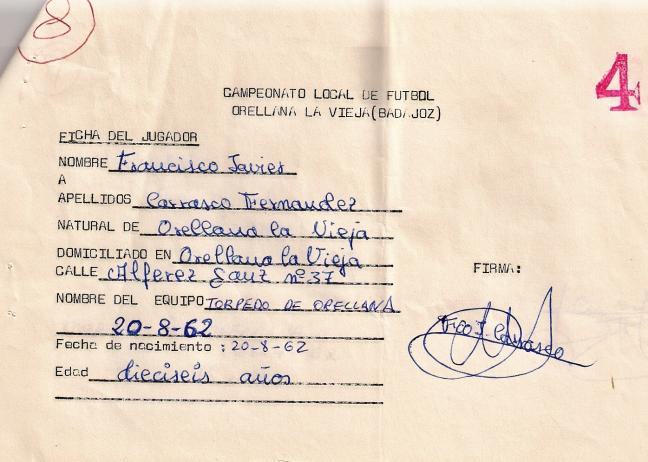 8
4
CAMPEONATO LOCAL DE FUTBOL
ORELLANA LA VIEJA(BADAJOZ)
FICHA DEL JUGADOR
NOMBRE Francisco Javier
A
APELLIDOS Carrasco Fernandez
NATURAL DE Orellana la Vieja
DOMICILIADO EN Orellana la Vieja
CALLE Alferez Sanz nº 37
FIRMA:
NOMBRE DEL EQUIPO TORPEDO DE ORELLANA
20-8-62
Fco J. Carrasco
Fecha de nacimiento : 20-8-62
Edad dieciseis años